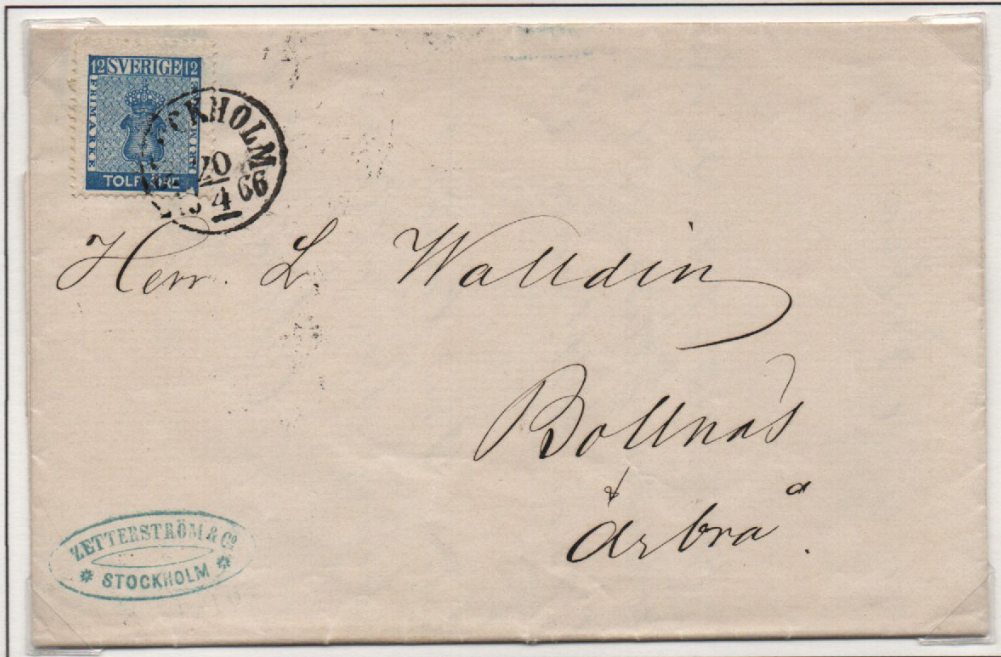 12 SVERIGE 12
FRIMÄRKE
TOLF ÖRE
STOCKHOLM
20
4 66
Herr L. Walldin
Bollnäs
&
Arbrå.
ZETTERSTRÖM & Co
STOCKHOLM